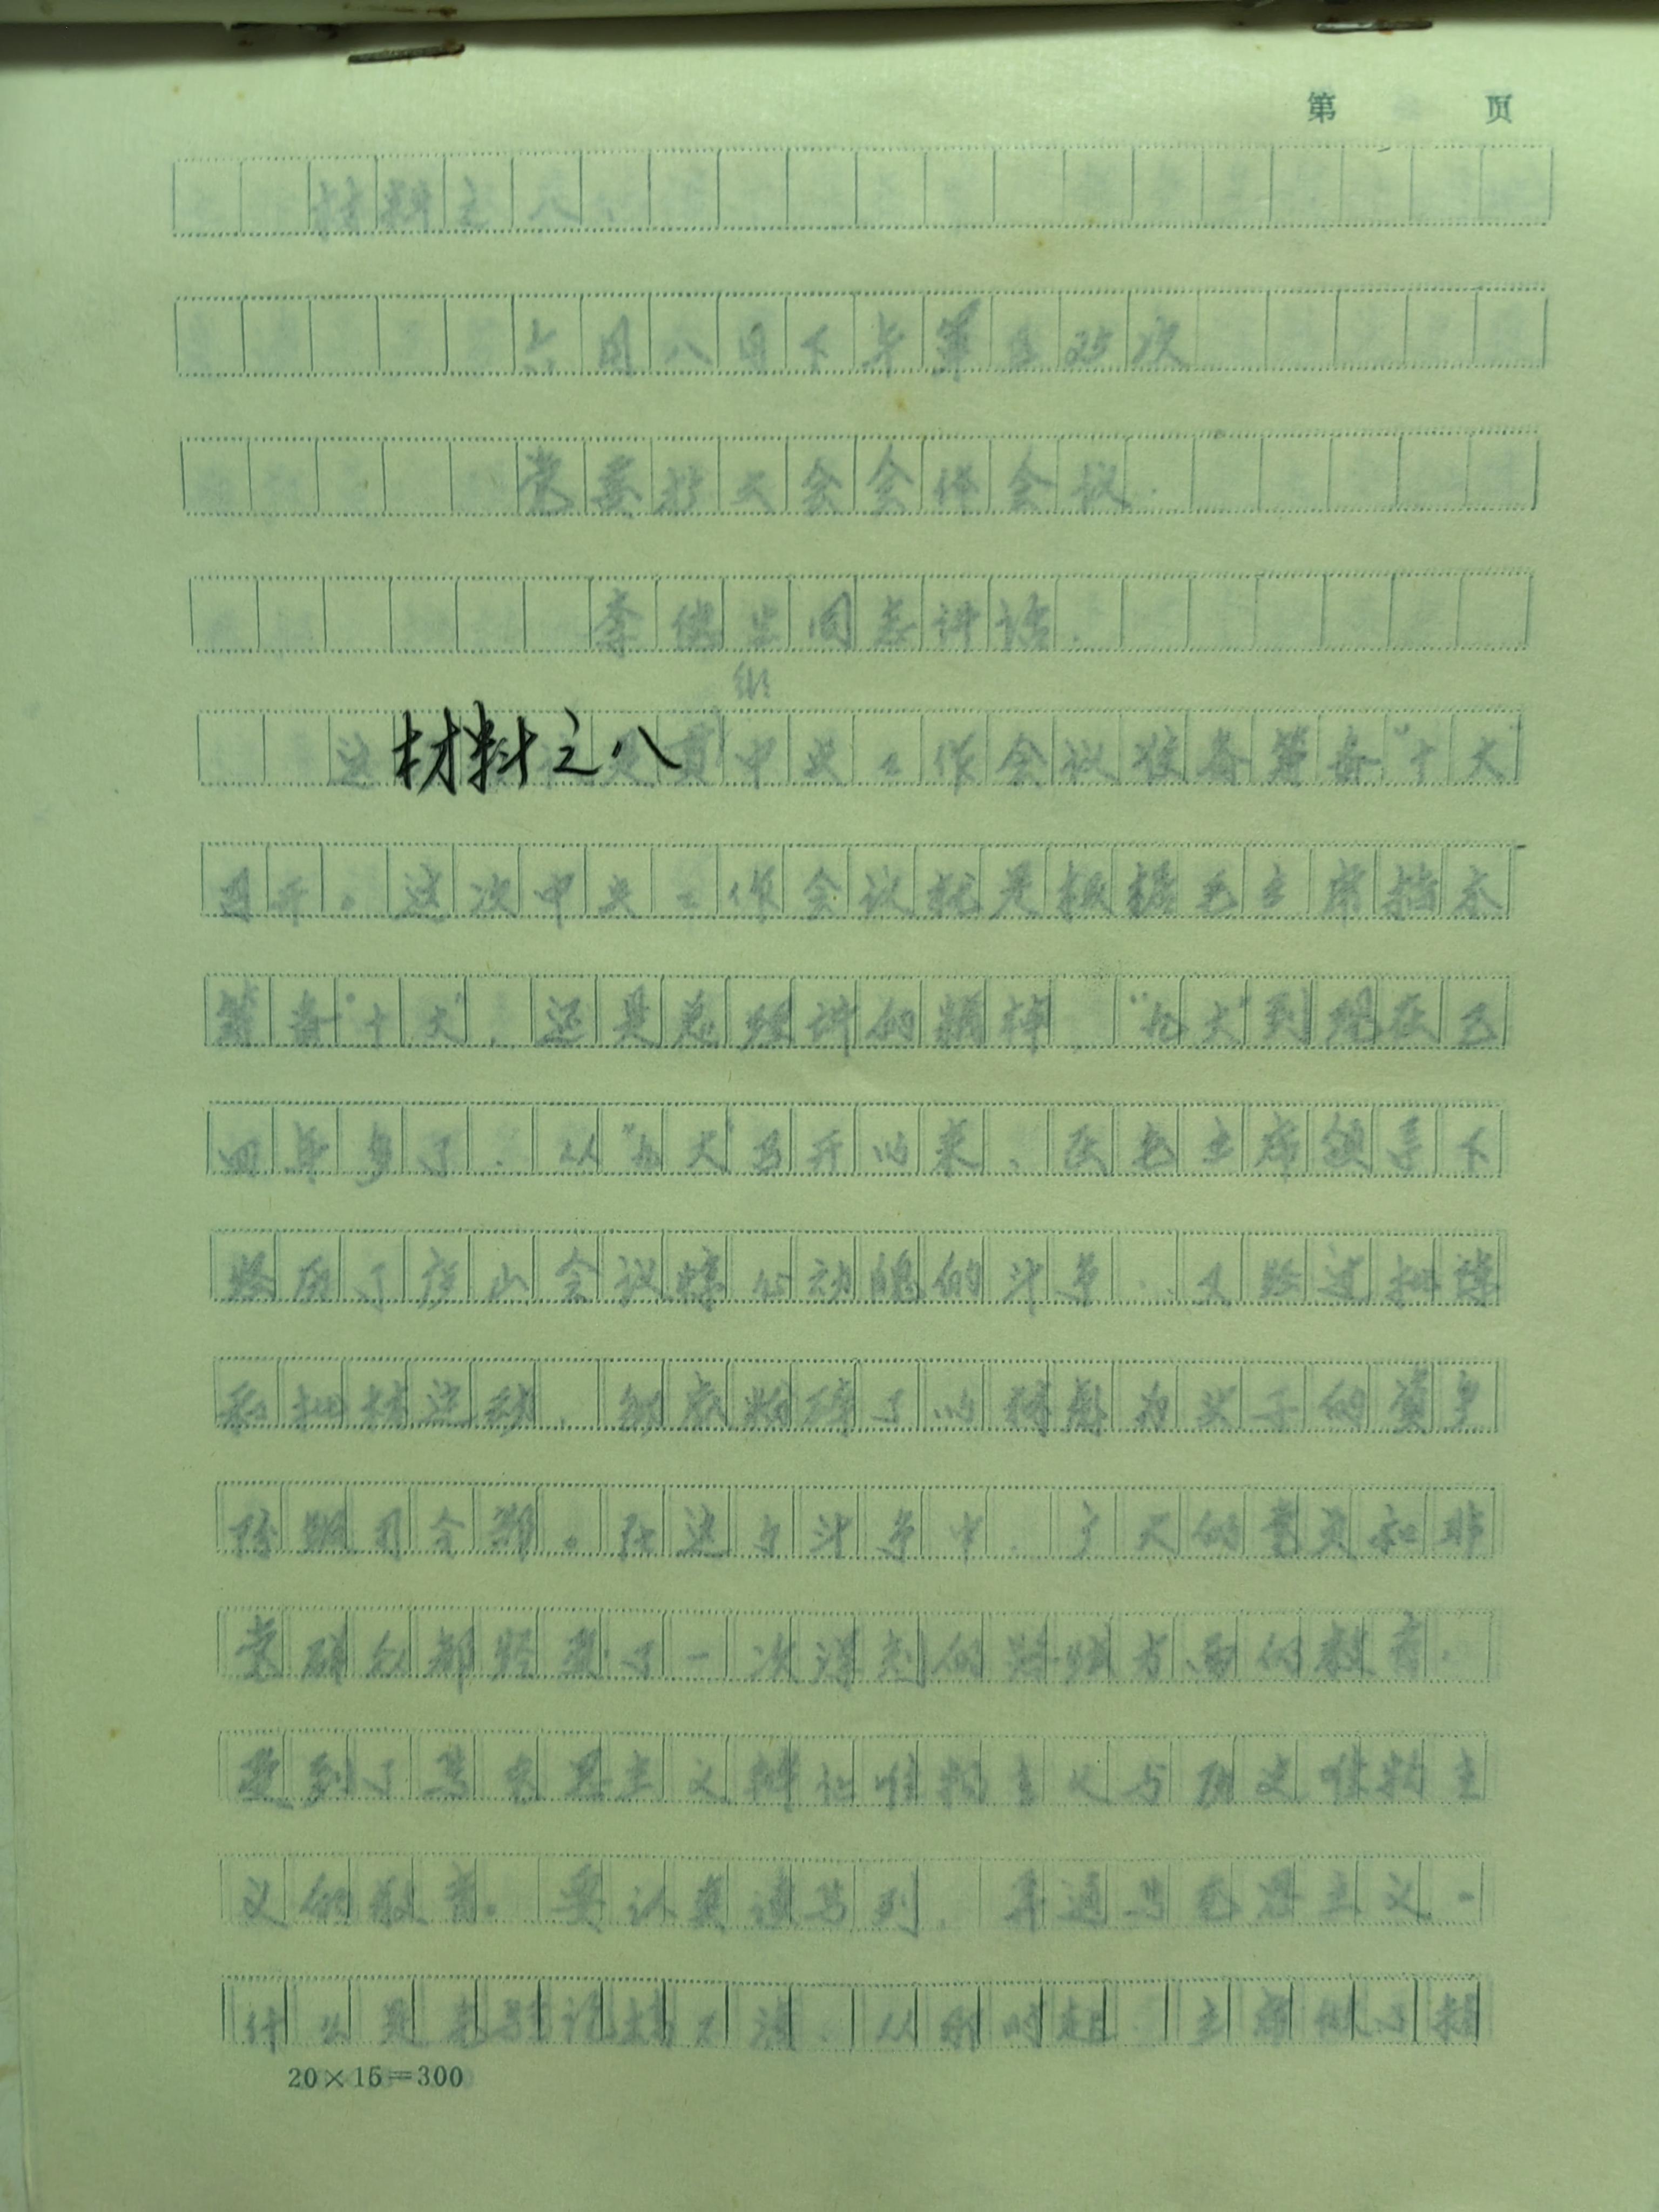 第 页
材料之八
六月八日下午第 次
党委扩大会 会议
李德生同志讲话
们
材料之八
这 中央工作会议 备筹备"十大"
召开。这次中央工作会议就是根据毛主席指示
筹备"十大",还是总理讲的精神,"九大"到现在已
四年多了。从"九大"召开以来,在毛主席领导下
经历了庐山会议惊心动魄的斗争,又经过批陈
和批林运动, 底粉碎了以林彪为头子的资产
阶级司令部。在这 斗争中,广大的党员和非
党群众都经 了一次深刻的路线方面的教育。
受到了马克思主义辩证唯物主义与历史唯物主
义的教育。要认真读马列, 马克思主义。
什么是 不 。从 时起,主席
20×15=300